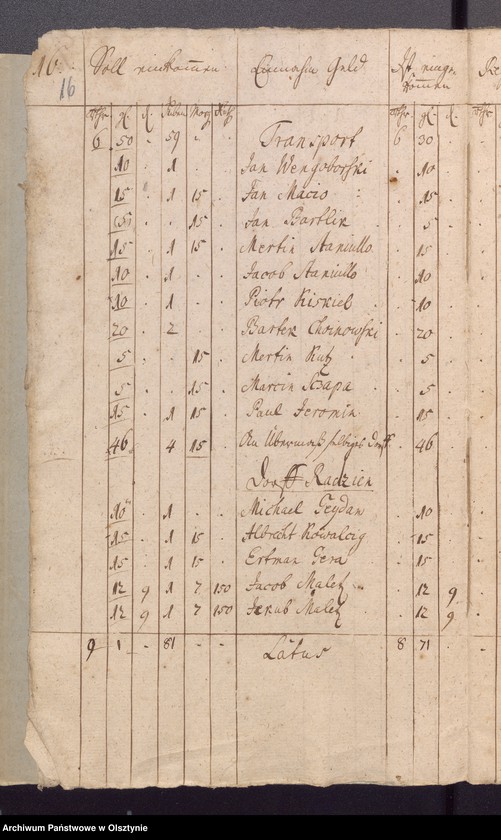 16. Soll einkommen
16
Geld Ist einge-
kommen
6 50 . 59 . . Transport 6 30 .
10 . 1 . . Jan Wengoborski . 10
15 1 15 . Jan Macio . 15
. 15 . Jan Bartlik . 5
15 . 1 15 . Mertin Staniullo . 15
10 . 1 . . Jacob Staniullo . 10
10 . 1 . . Piotr Kiskiel . 10
20 . 2 . . Bartek Choinowski . 20
5 . . 15 . Mertin Kutz . 5
5 . . 15 . Marcin Czapa . 5
15 . 1 15 . Paul Jeromin . 15
46 . 4 15 . An Übermaaß selbiges Dorff . 46
Dorff Radzien
10 . 1 . . Michael Geydan . 10
15 . 1 15 . Albrecht Kowalczig . 15
15 . 1 15 . Ertman Gera . 15
12 9 1 7 150 Jacob Maletz . 12 9
12 9 1 7 150 Jakub Maletz . 12 9
9 1 . 81 . . Latus 8 71 .
Archiwum Państwowe w Olsztynie